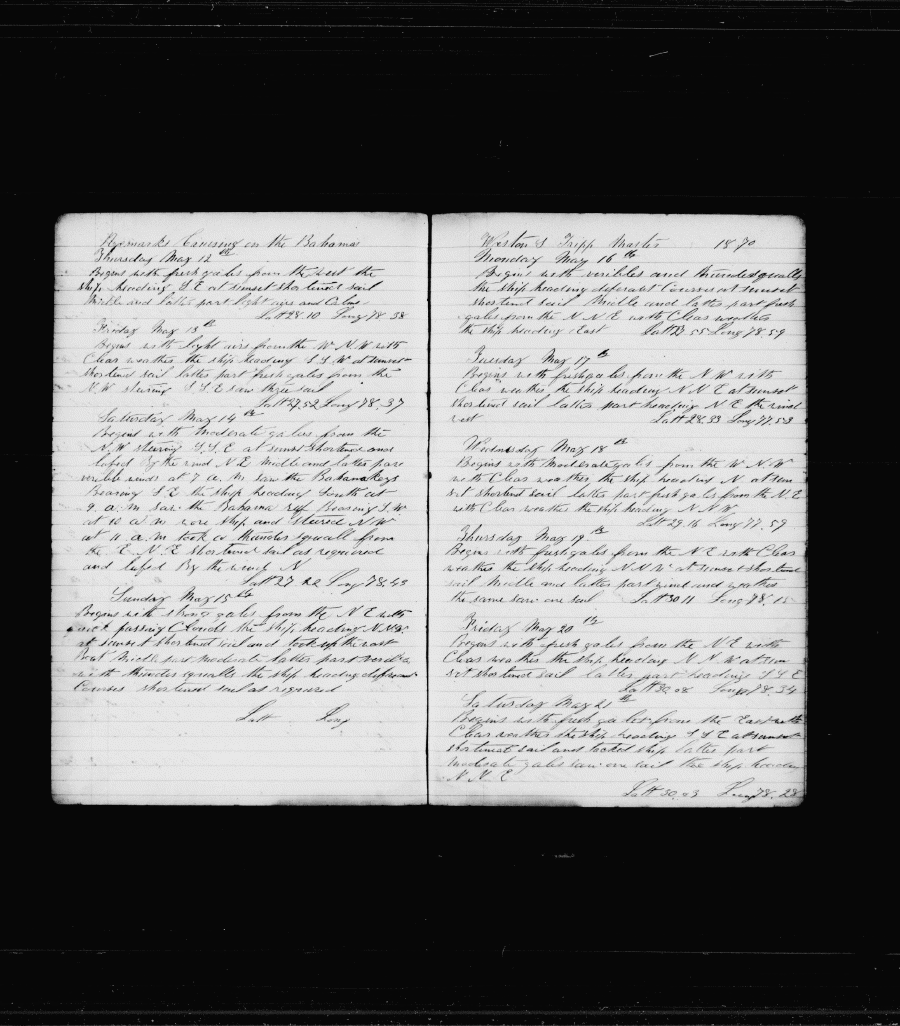 Remarks Cruising on the Bahamas
Thursday May 12th
Begins with fresh gales from the west the
ship heading S E at sunset shortened sail
Middle and latter part light airs and Calm
Latt 28.10 Long 78.38
Friday May 13th
Begins with light airs from the W N W with
Clear weather the ship heading S S W at sunset
shortened sail latter part fresh gales from the
N. W steering S S E saw three sail
Latt 27.52 Long 78.37
Saturday May 14th
Begins with Moderate gales from the
N. W steering S. S. E at sunset shortened and
lufed By the wind N E Middle and latter part
verible winds at 7 a. m saw the Bahama keys
Bearing S E the ship heading South at
9. a. m saw the Bahama reef Bearing S. W
at 10 a. m wore ship and steered N W
at 11 a. m took a thunder squall from
the E. N. E shortened sail as required
and lufed By the wind N
Latt 27 22 Long 78.43
Sunday May 15th
Begins with strong gales from the N E with
passing Clouds the ship heading N N W
at sunset shortened sail and took up the
Boat Middle part moderate latter part
with thunder squalls the ship heading
Courses shortened sail as required
Latt Long
Weston S Tripp Master 1870
Monday May 16th
Begins with veribles and thunder squalls
the ship heading deferant Courses at sunset
shortened sail Middle and latter part fresh
gales from the N N E with Clear weather
the ship heading East Latt 27 55 Long 78.59
Tuesday May 17th
Begins with fresh gales from the N W with
Clear weather the ship heading N N E at sunset
shortened sail latter part heading N E the wind
west Latt 28.33 Long 77.53
Wednsday May 18th
Begins with Moderate gales from the W N. W
with Clear weather the ship heading N. at sun
set shortened sail latter part fresh gales from the N. E
with Clear weather the ship heading N N W
Latt 29 16 Long 77.59
Thursday May 19th
Begins with fresh gales from the N E with Clear
weather the ship heading N N W at sunset shortened
sail Middle and latter part wind and weather
the same saw one sail Latt 30 11 Long 78.15
Friday May 20th
Begins with fresh gales from the N E with
Clear weather the ship heading N. N. W at sun
set shortened sail latter part heading S S E
Latt 30.08 Long 78.34
Saturday May 21st
Begins with fresh gales from the East with
Clear weather the ship heading S S E at sunset
shortened sail and tacked ship latter part
moderate gales saw one sail the ship heading
N. N. E
Latt 30.03 Long 78.28